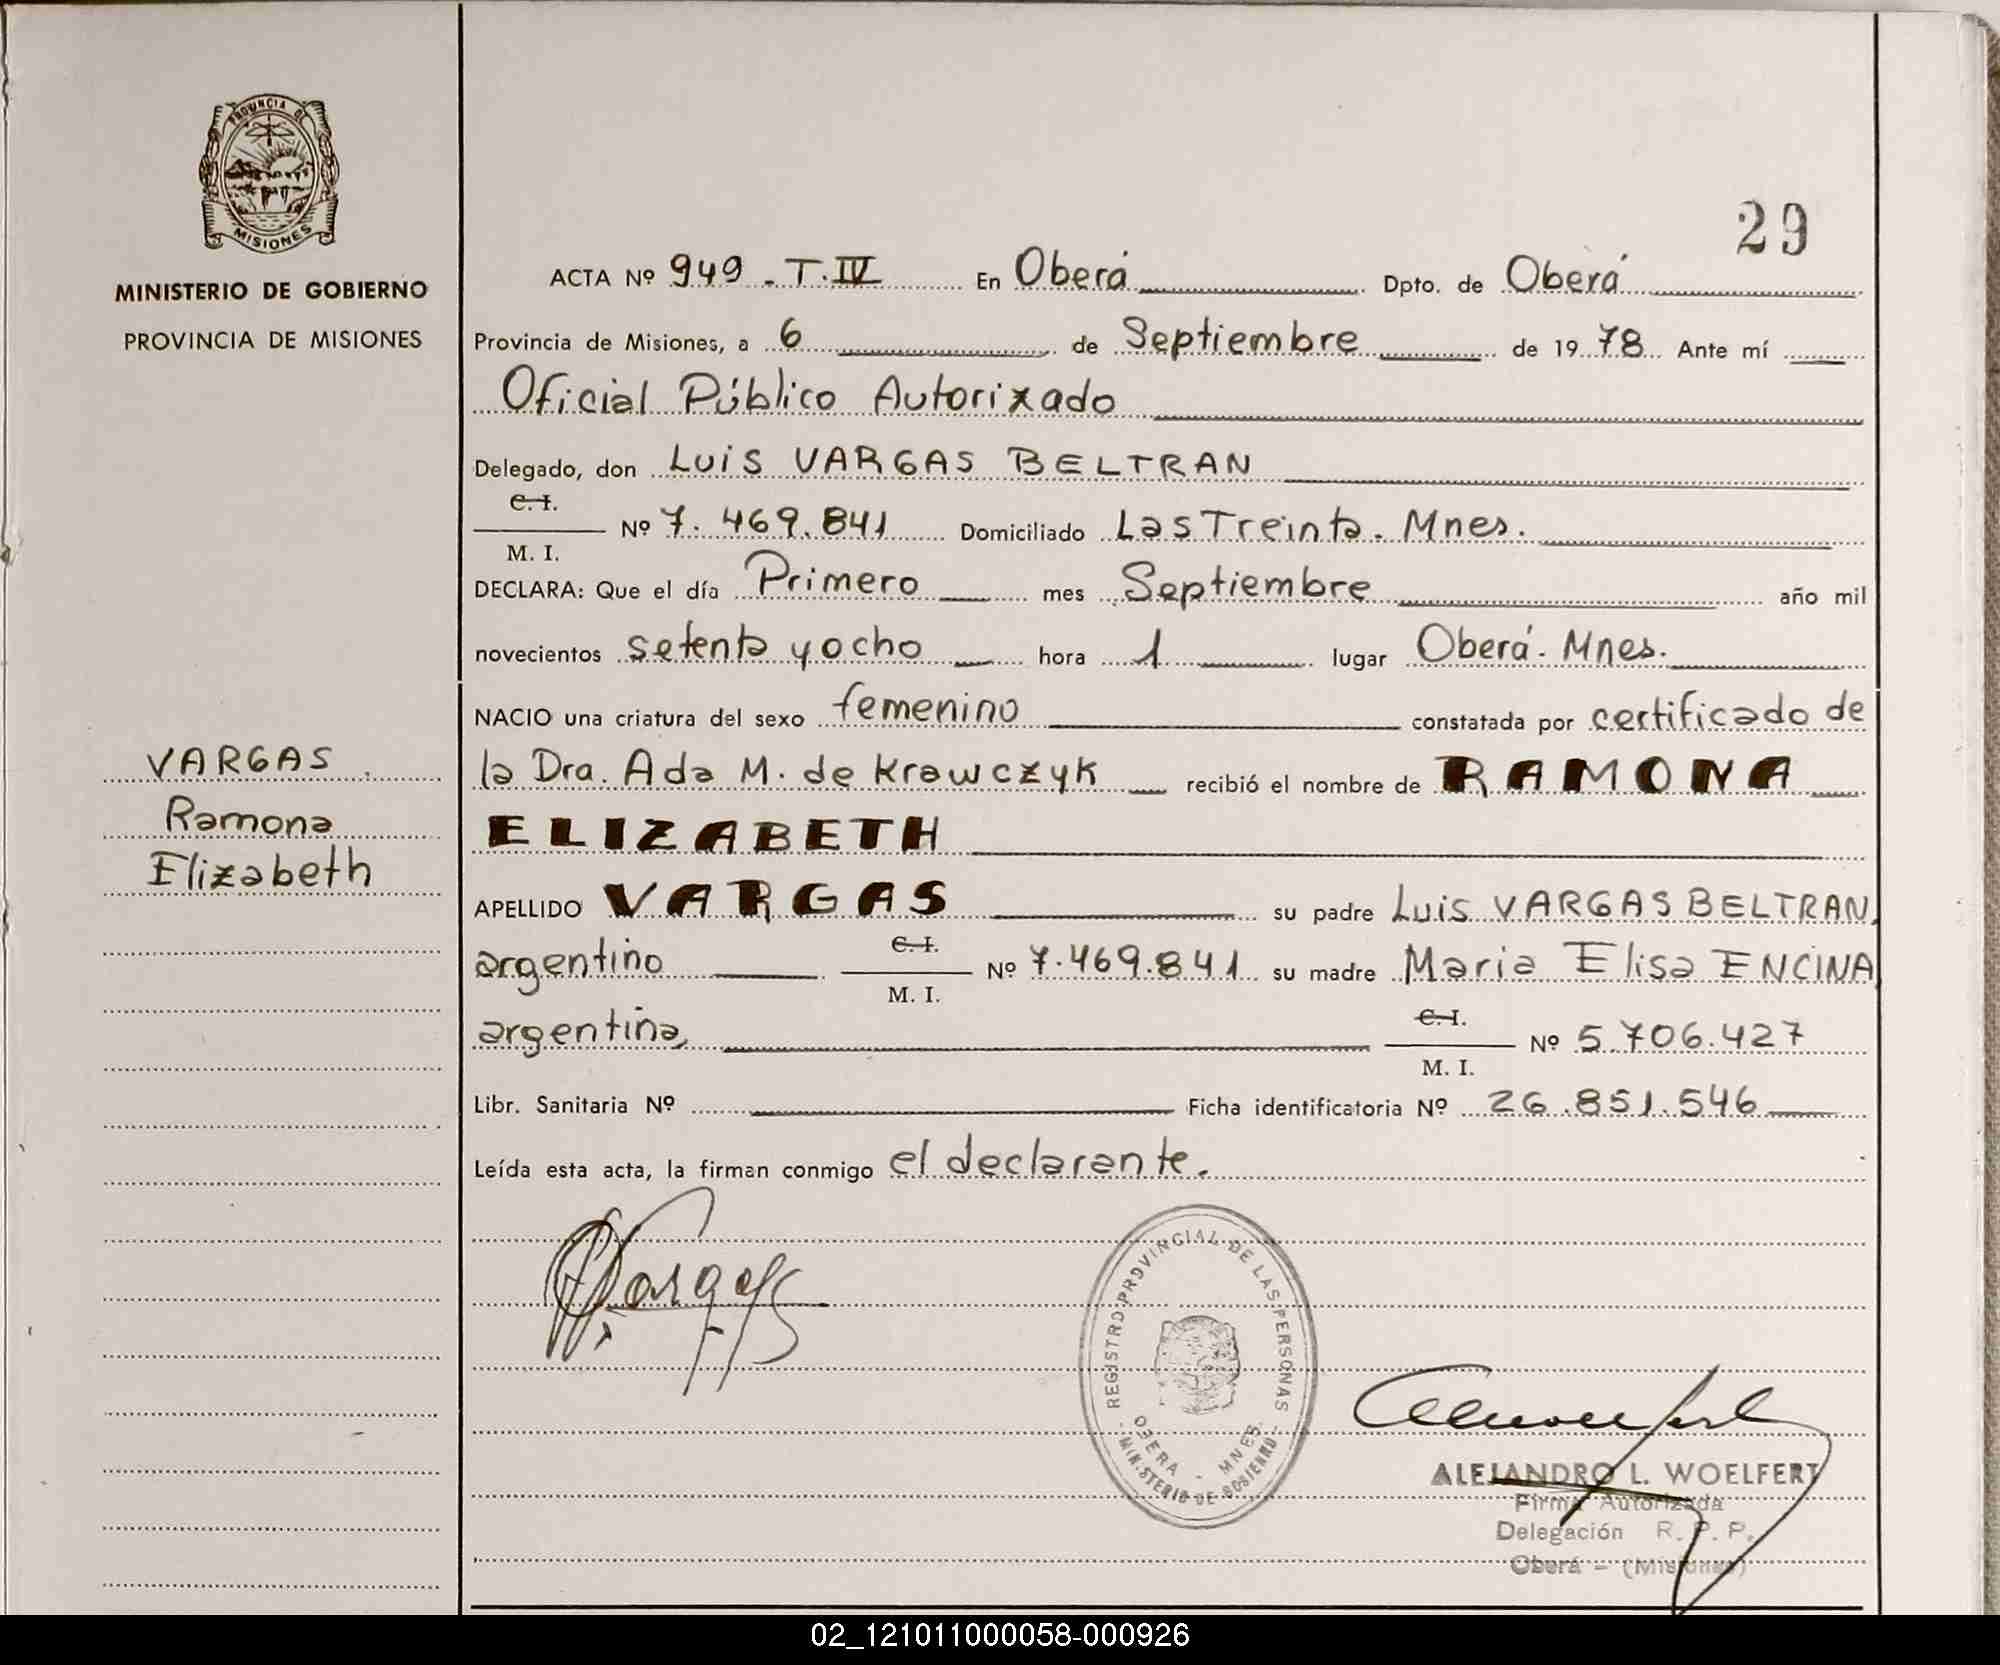 PROVINCIA DE
MISIONES
MINISTERIO DE GOBIERNO
PROVINCIA DE MISIONES
VARGAS
Ramona
Elizabeth
29
ACTA Nº 949 - T. IV En Oberá Dpto. de Oberá
Provincia de Misiones, a 6 de Septiembre de 1978 Ante mí
Oficial Público Autorixado
Delegado, don Luis VARGAS BELTRAN
C. I.
Nº 7.469.841 Domiciliado Las Treinta. Mnes.
M. I.
DECLARA: Que el día Primero mes Septiembre año mil
novecientos setenta y ocho hora 1 lugar Oberá. Mnes.
NACIO una criatura del sexo femenino constatada por certificado de
la Dra. Ada M. de Krawczyk recibió el nombre de RAMONA
ELIZABETH
APELLIDO VARGAS su padre Luis VARGAS BELTRAN,
argentino C. I. Nº 7.469.841 su madre Maria Elisa ENCINA,
M. I.
argentina, C. I. Nº 5.706.427
M. I.
Libr. Sanitaria Nº Ficha identificatoria Nº 26.851.546
Leída esta acta, la firman conmigo el declarante.
Vargas
REGISTRO PROVINCIAL DE LAS PERSONAS
OBERA - MNES.
- MINISTERIO DE GOBIERNO -
ALEJANDRO L. WOELFERT
Firma Autorizada
Delegación R. P. P.
Oberá - (Misiones)
02_121011000058-000926